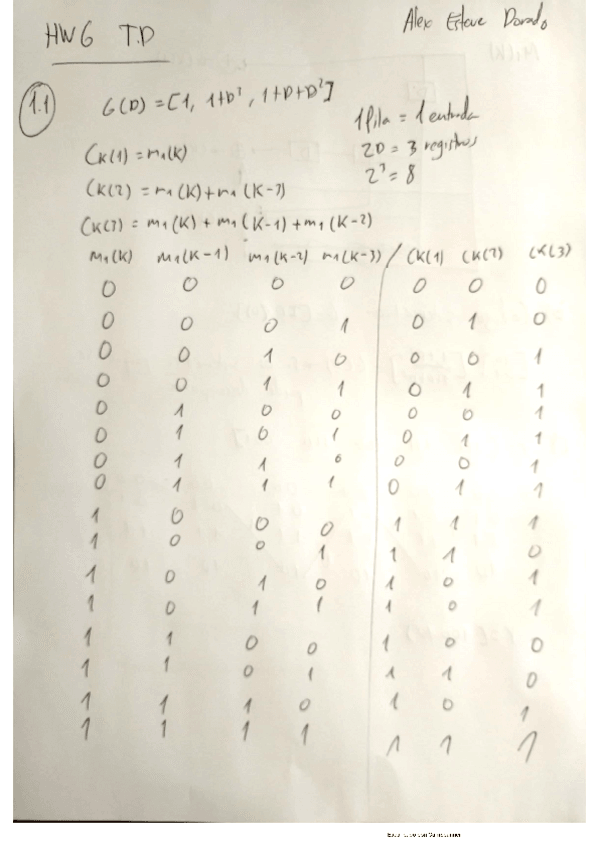 HW6 T.D
Alex Esteve Dorado
1.1
G(D) = [1, 1+D³, 1+D+D²]
1 fila = 1 entrada
CK(1) = m₁(K)
2D = 3 registros
CK(2) = m₁(K) + m₁(K-3)
2³ = 8
CK(3) = m₁(K) + m₁(K-1) + m₁(K-2)
m₁(K) m₁(K-1) m₁(K-2) m₁(K-3) / CK(1) CK(2) CK(3)
0 0 0 0 0 0 0
0 0 0 1 0 1 0
0 0 1 0 0 0 1
0 0 1 1 0 1 1
0 1 0 0 0 0 1
0 1 0 1 0 1 1
0 1 1 0 0 0 1
0 1 1 1 0 1 1
1 0 0 0 1 1 1
1 0 0 1 1 1 0
1 0 1 0 1 0 1
1 0 1 1 1 0 1
1 1 0 0 1 0 0
1 1 0 1 1 1 0
1 1 1 0 1 0 1
1 1 1 1 1 1 1